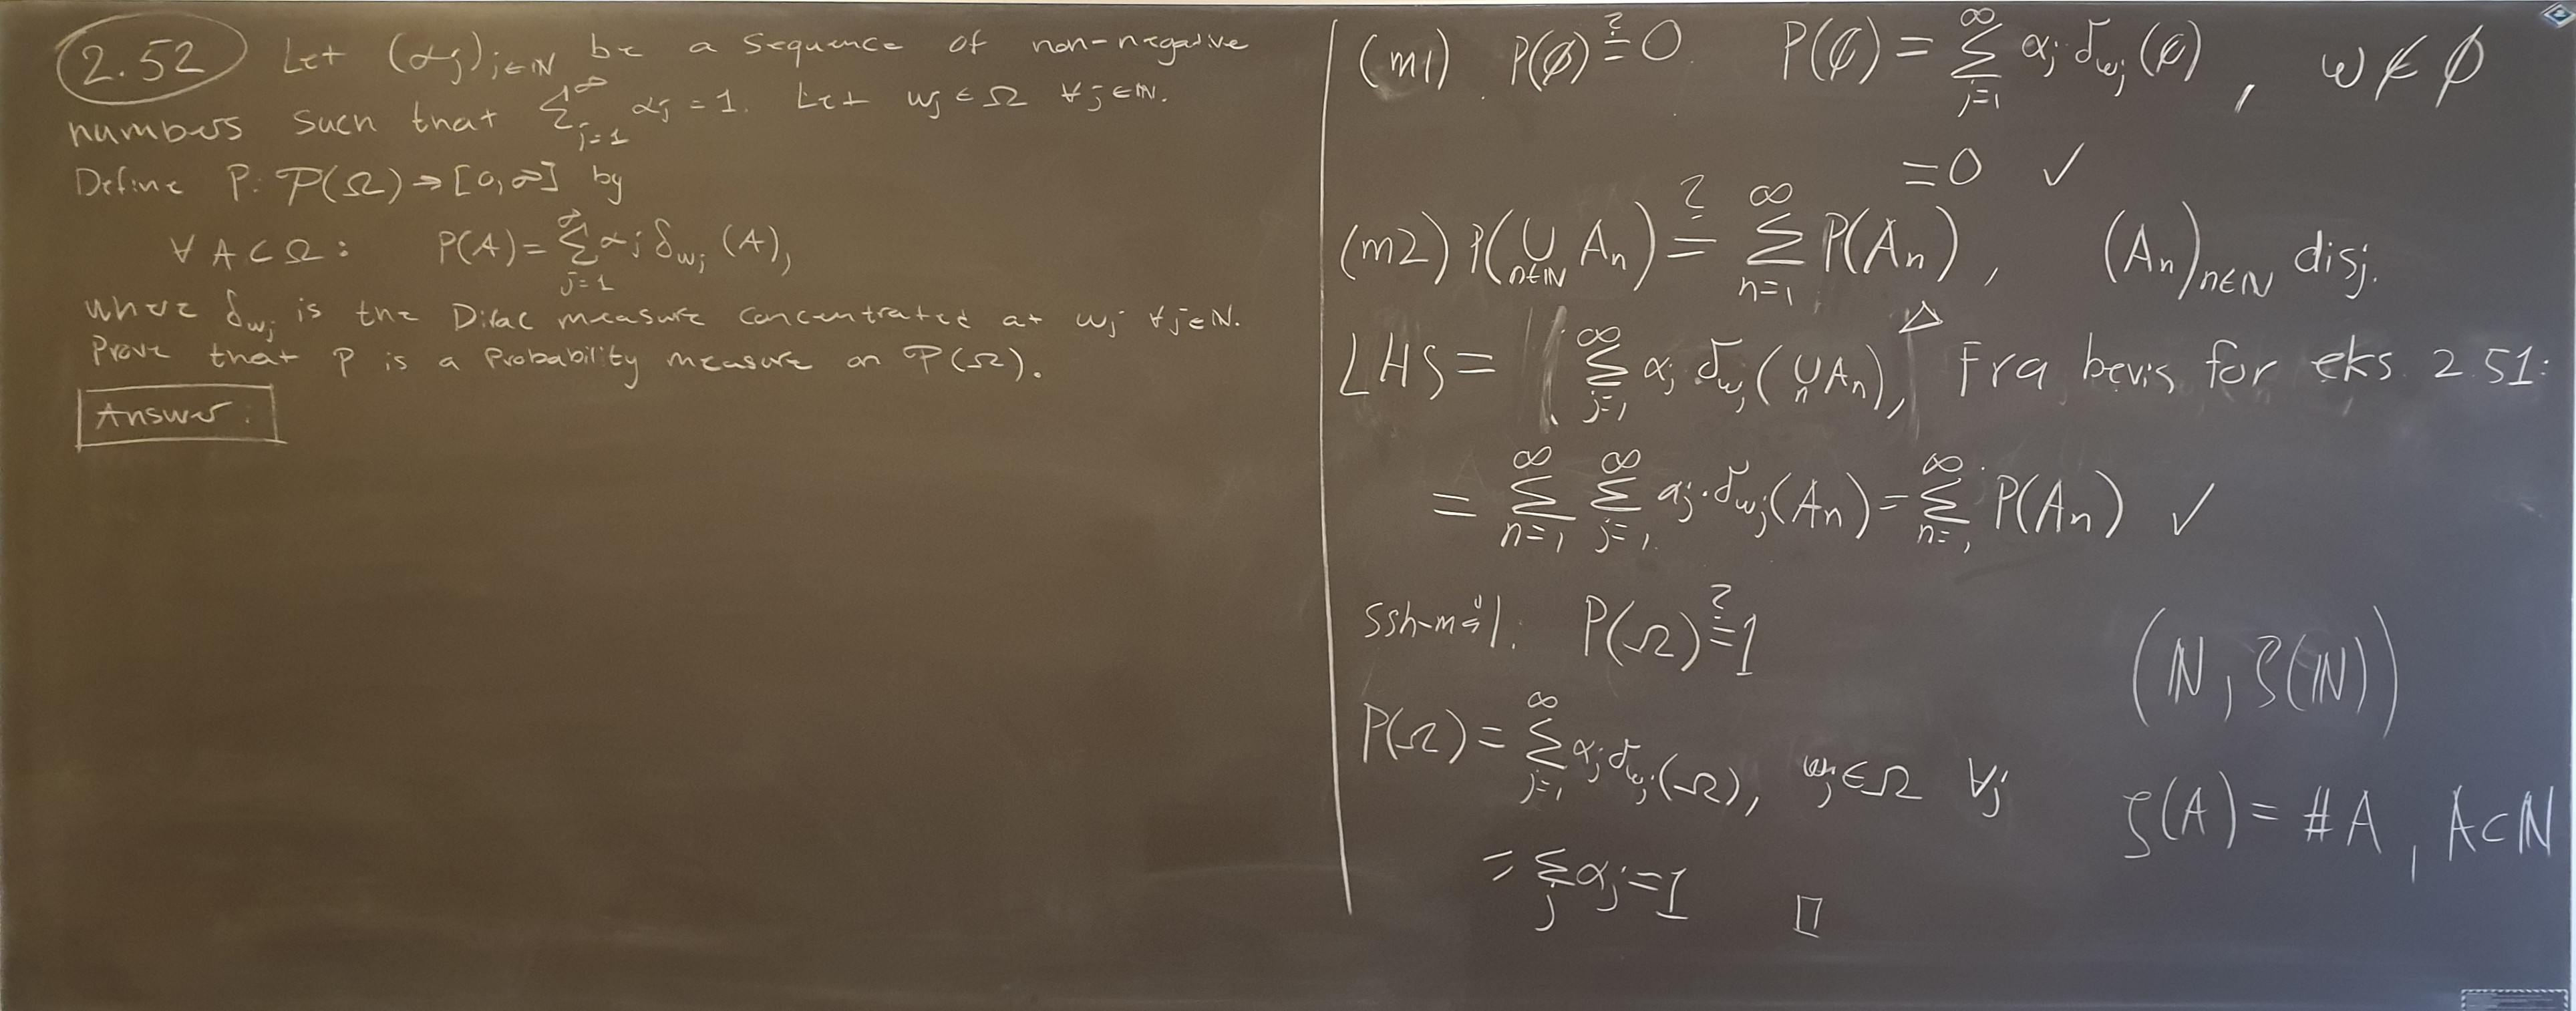 2.52 Let (αj)j∈ℕ be a sequence of non-negative
numbers such that ∑_{j=1}^∞ αj = 1. Let wj ∈ Ω ∀j∈ℕ.
Define P: 𝒫(Ω) → [0,∞] by
∀ A ⊂ Ω: P(A) = ∑_{j=1}^∞ αj δ_{wj} (A),
where δ_{wj} is the Dirac measure concentrated at wj ∀j∈ℕ.
Prove that P is a Probability measure on 𝒫(Ω).
Answer:
(m1) P(∅) ≟ 0. P(∅) = ∑_{j=1}^∞ αj δ_{wj}(∅), ω ∉ ∅
= 0 ✓
(m2) P(⋃_{n∈ℕ} An) ≟ ∑_{n=1}^∞ P(An), (An)n∈ℕ disj.
LHS = ∑_{j=1}^∞ αj δ_{wj}(⋃_n An), △ Fra bevis for eks 2.51:
= ∑_{n=1}^∞ ∑_{j=1}^∞ αj · δ_{wj}(An) = ∑_{n=1}^∞ P(An) ✓
ssh-mål: P(Ω) ≟ 1
P(Ω) = ∑_{j=1}^∞ αj δ_{wj}(Ω), wj ∈ Ω ∀j
= ∑_j αj = 1 □
(ℕ, 𝒫(ℕ))
ζ(A) = #A, A⊂ℕ